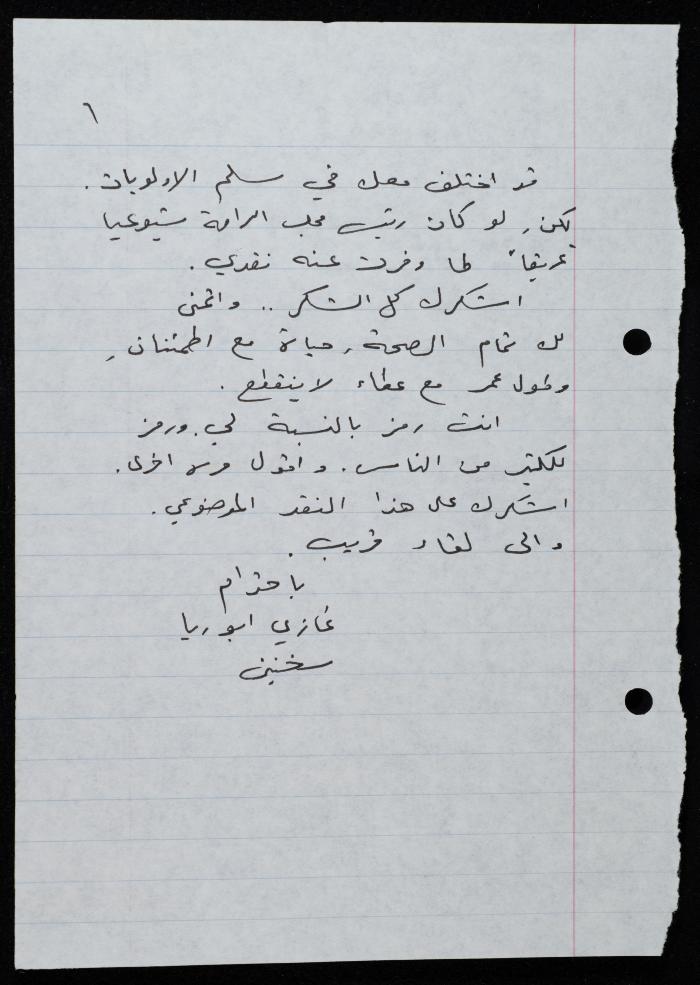 ٦
قد اختلف معك في سلم الاولويات.
لكن, لو كان رئيس مجلس الرامة شيوعيا
عريقاً لما وفرت عنه نقدي.
اشكرك كل الشكر .. واتمنى
لك تمام الصحة, حياة مع اطمئنان,
وطول عمر مع عطاء لا ينقطع.
انت رمز بالنسبة لي. ورمز
للكثير من الناس. واقول مرة اخرى.
اشكرك على هذا النقد الموضوعي.
والى لقاء قريب.
باحترام
غازي ابو ريا
سخنين